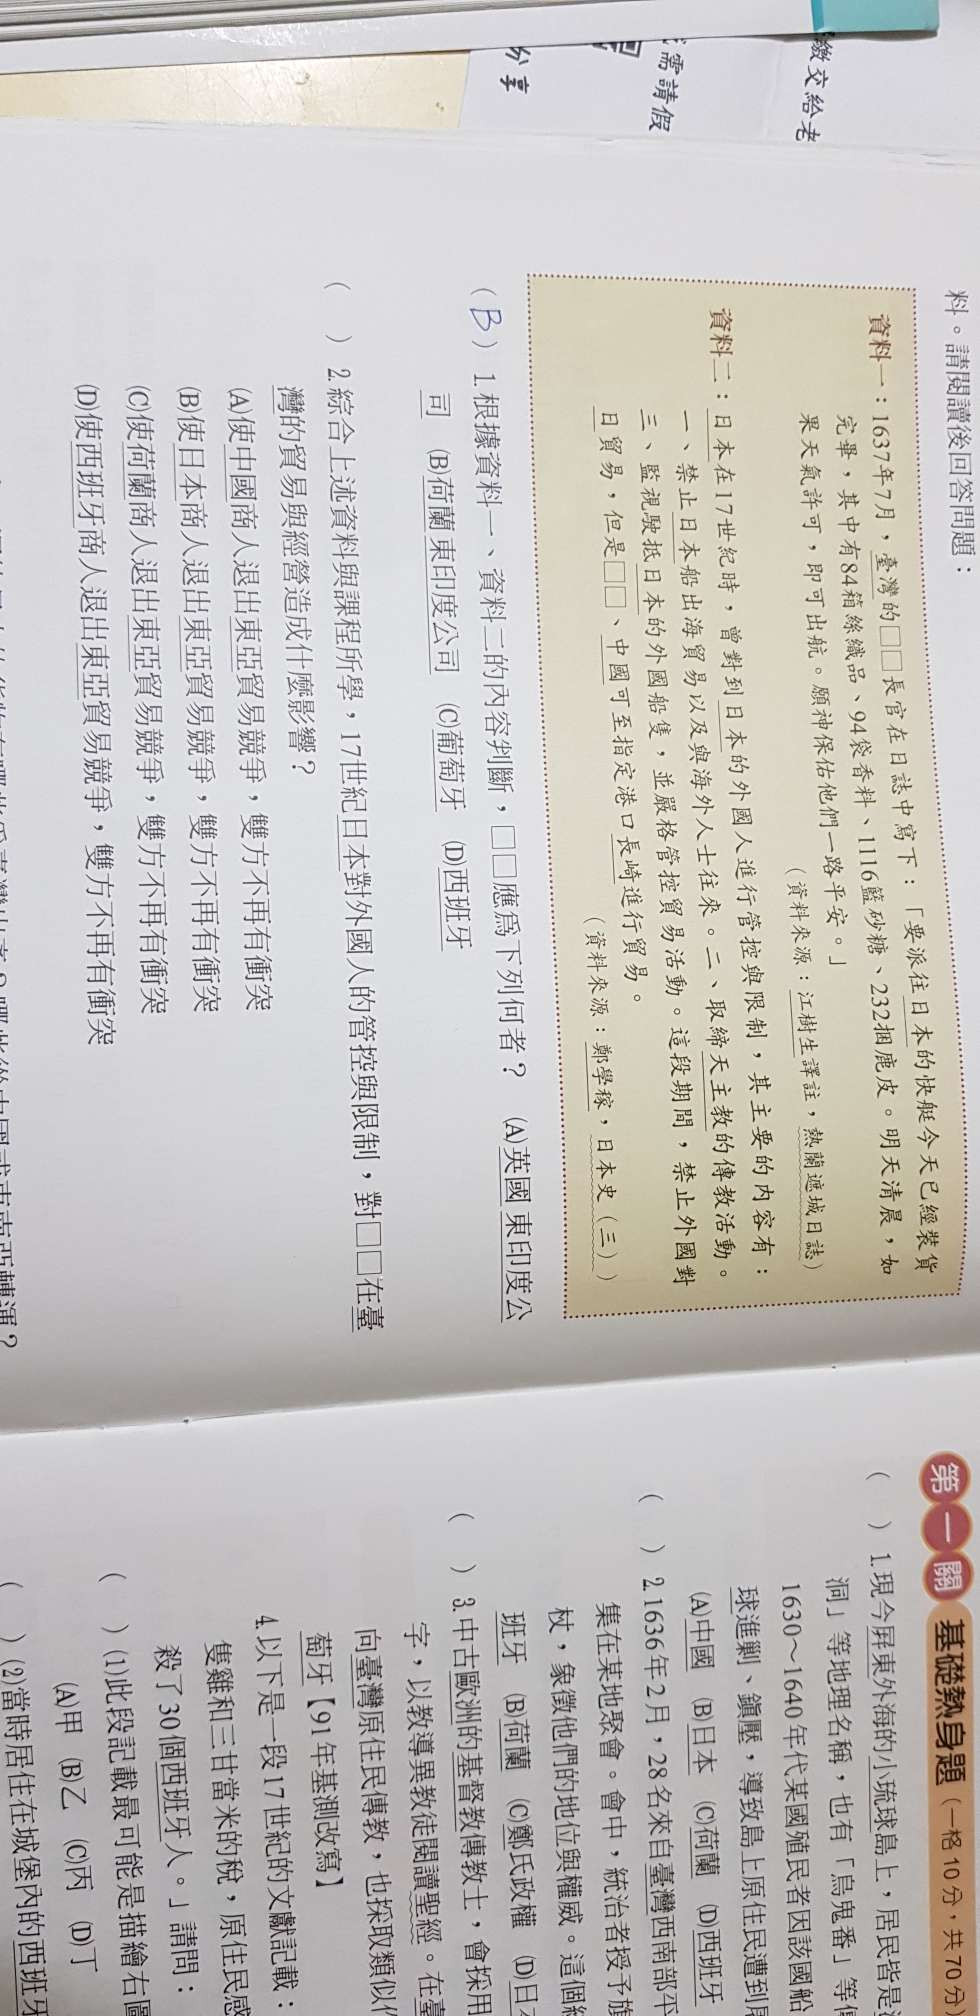 繳交給老
需請假
分享
料。請閱讀後回答問題：
資料一：1637年7月，臺灣的□□長官在日誌中寫下：「要派往日本的快艇今天已經裝貨
完畢，其中有84箱絲織品、94袋香料、1116籃砂糖、232捆鹿皮。明天清晨，如
果天氣許可，即可出航。願神保佑他們一路平安。」
（資料來源：江樹生譯註，熱蘭遮城日誌）
資料二：日本在17世紀時，曾對到日本的外國人進行管控與限制，其主要的內容有：
一、禁止日本船出海貿易以及與海外人士往來。二、取締天主教的傳教活動。
三、監視駛抵日本的外國船隻，並嚴格管控貿易活動。這段期間，禁止外國對
日貿易，但是□□、中國可至指定港口長崎進行貿易。
（資料來源：鄭學稼，日本史（三））
（B）1.根據資料一、資料二的內容判斷，□□應為下列何者？ (A)英國東印度公
司 (B)荷蘭東印度公司 (C)葡萄牙 (D)西班牙
（ ）2.綜合上述資料與課程所學，17世紀日本對外國人的管控與限制，對□□在臺
灣的貿易與經營造成什麼影響？
(A)使中國商人退出東亞貿易競爭，雙方不再有衝突
(B)使日本商人退出東亞貿易競爭，雙方不再有衝突
(C)使荷蘭商人退出東亞貿易競爭，雙方不再有衝突
(D)使西班牙商人退出東亞貿易競爭，雙方不再有衝突
第一關 基礎熱身題（一格10分，共70分）
（ ）1.現今屏東外海的小琉球島上，居民皆是
洞」等地理名稱，也有「烏鬼番」等
1630～1640年代某國殖民者因該國船
球進剿、鎮壓，導致島上原住民遭到
(A)中國 (B)日本 (C)荷蘭 (D)西班牙
（ ）2.1636年2月，28名來自臺灣西南部平
集在某地聚會。會中，統治者授予
杖，象徵他們的地位與權威。這個
班牙 (B)荷蘭 (C)鄭氏政權 (D)日
（ ）3.中古歐洲的基督教傳教士，會採用
字，以教導異教徒閱讀聖經。在臺
向臺灣原住民傳教，也採取類似
萄牙【91年基測改寫】
4.以下是一段17世紀的文獻記載：
隻雞和三甘當米的稅，原住民感
殺了30個西班牙人。」請問：
（ ）(1)此段記載最可能是描繪右圖
(A)甲 (B)乙 (C)丙 (D)丁
（ ）(2)當時居住在城堡內的西班牙